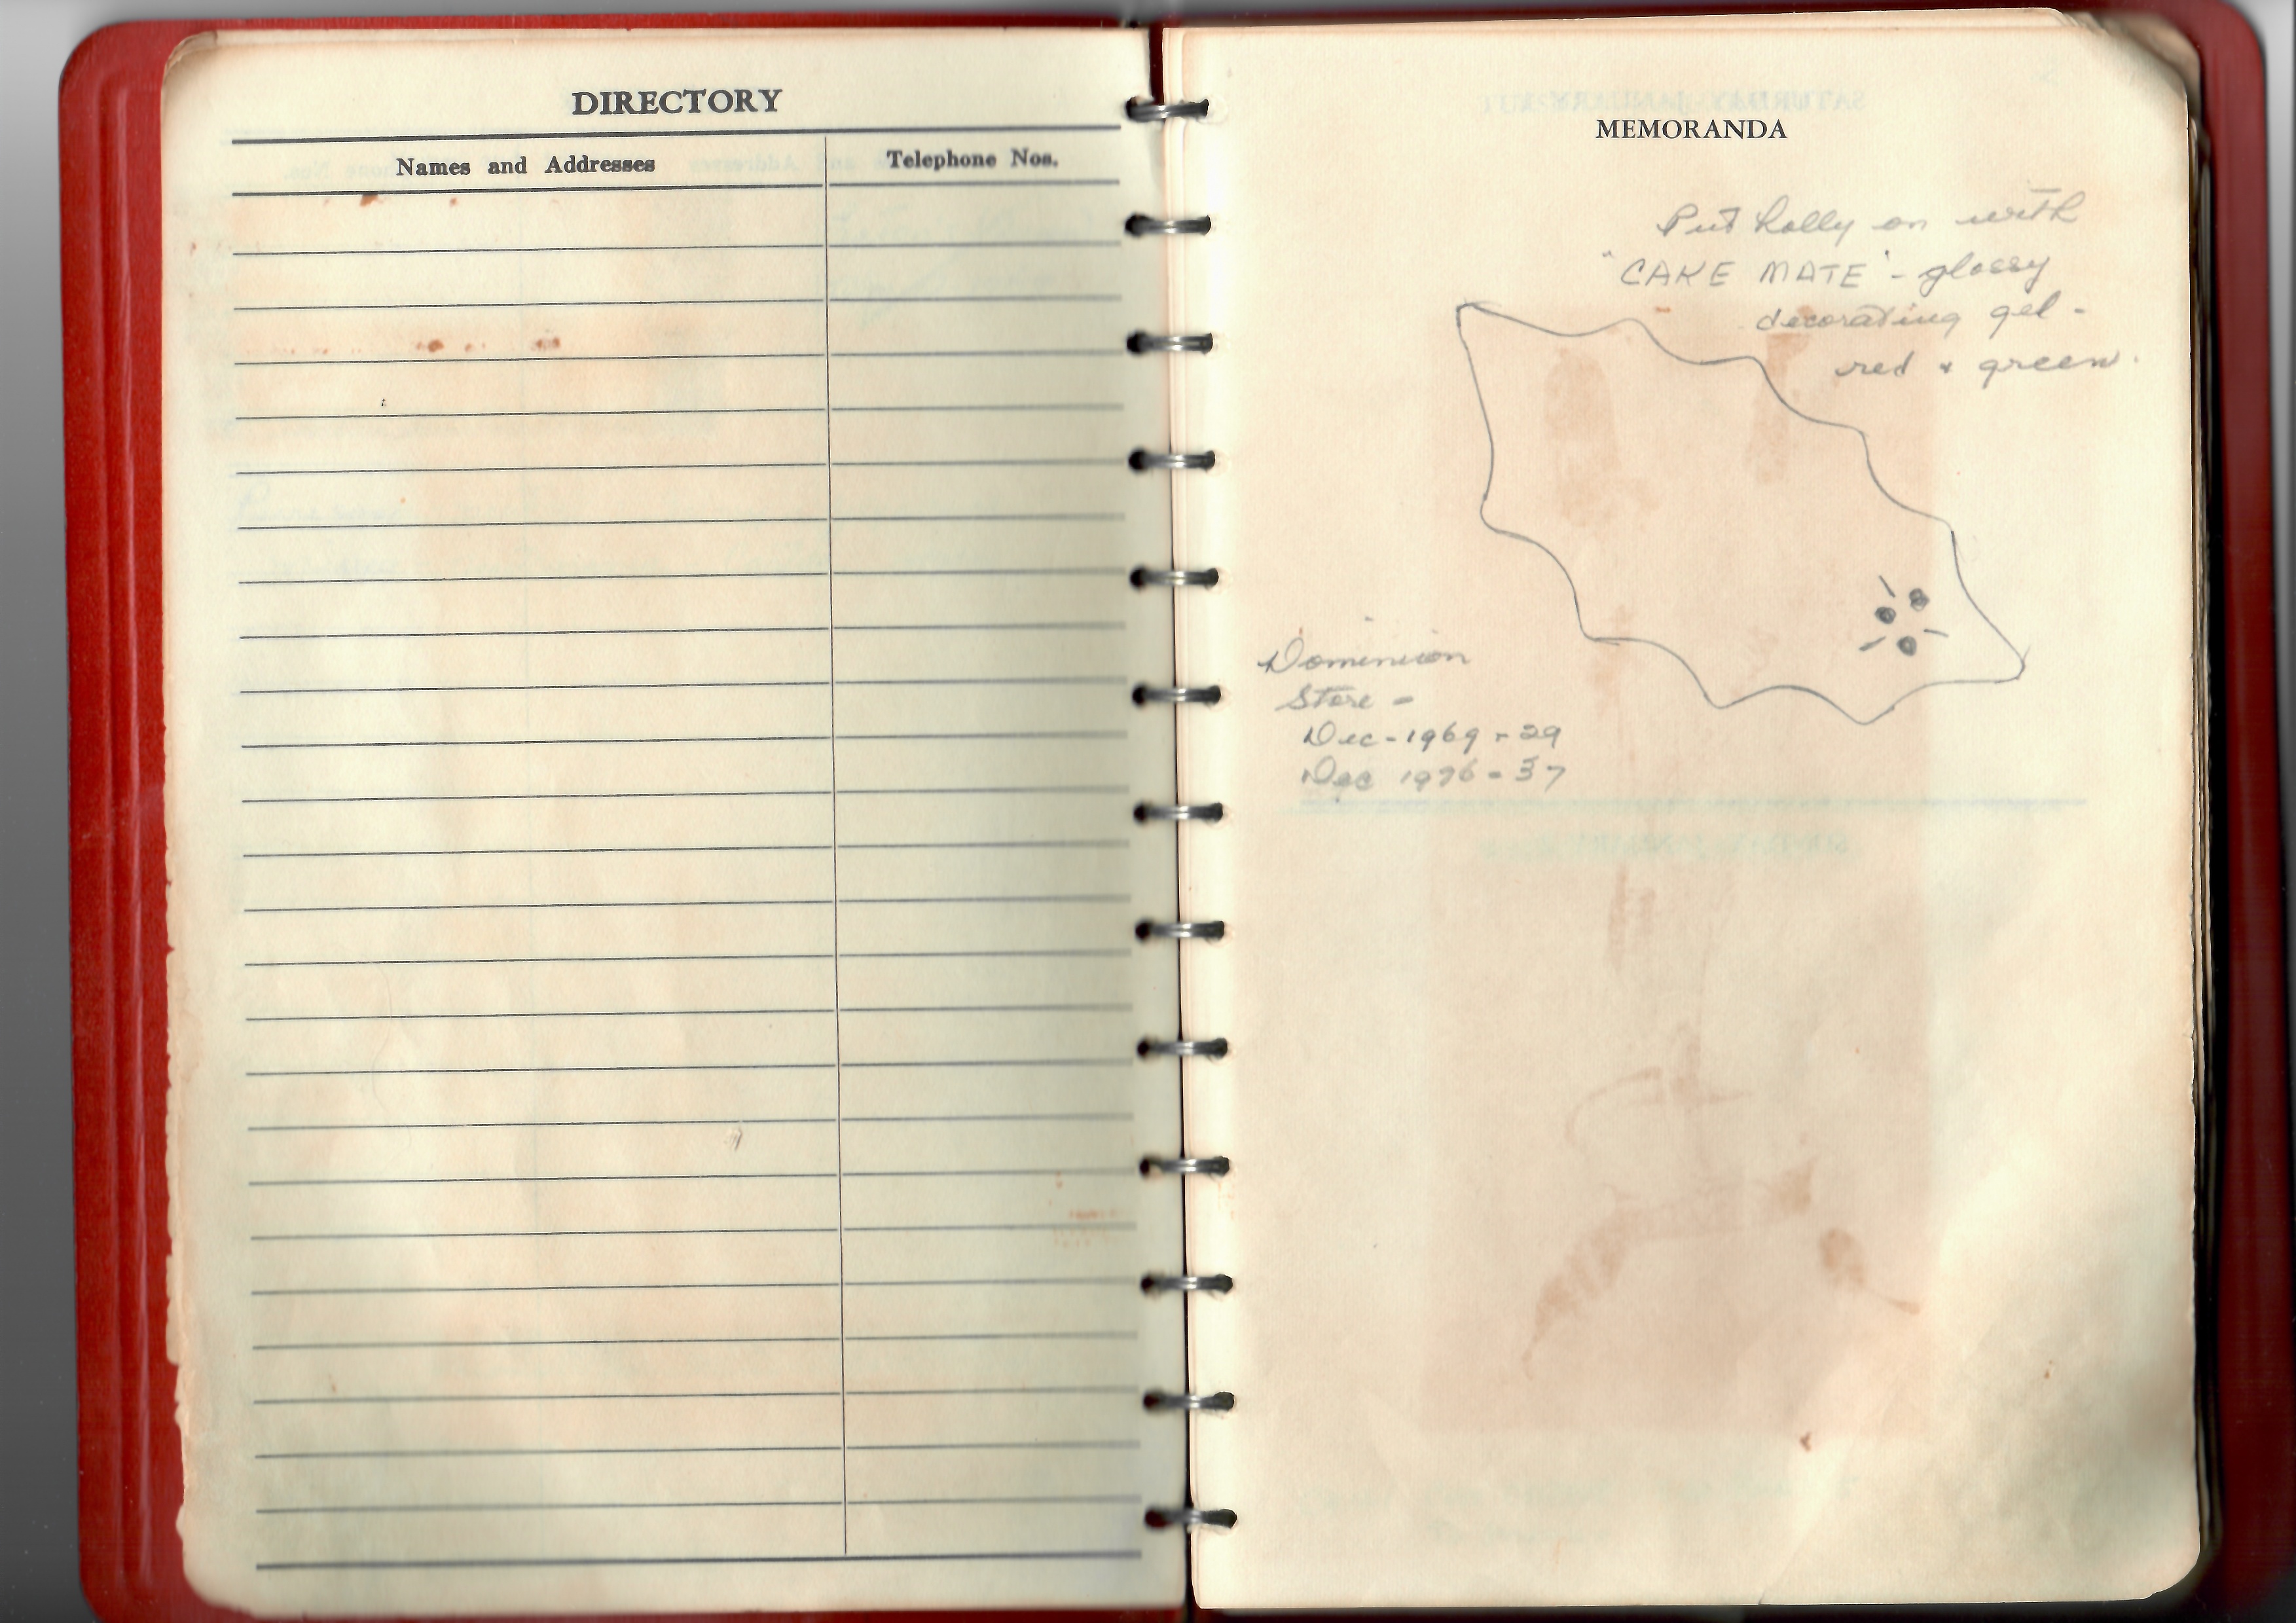 DIRECTORY
Names and Addresses
Telephone Nos.
MEMORANDA
Put holly on with
"CAKE MATE" - glossy
decorating gel -
red + green.
Dominion
Store -
Dec - 1969 - 29
Dec 1976 - 37